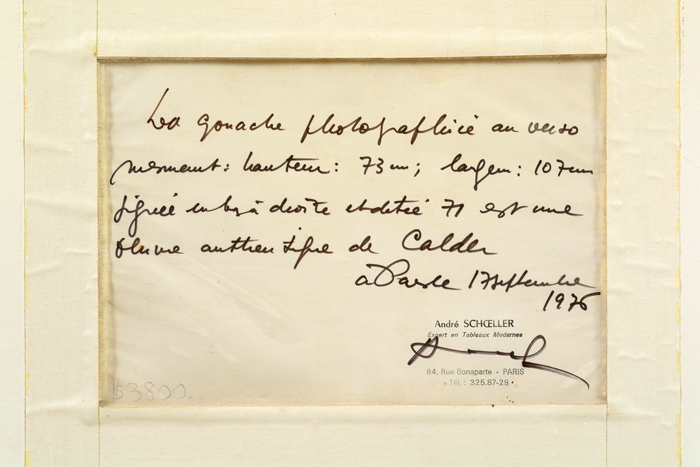 La gouache photographiée au verso
mesurant : hauteur : 73 cm ; largeur : 107 cm
signée en bas à droite et datée 71 est une
œuvre authentique de Calder
à Paris le 17 septembre
1976
André SCHŒLLER
Expert en Tableaux Modernes
84, Rue Bonaparte - PARIS
Tél. : 325.87-29
$3800.